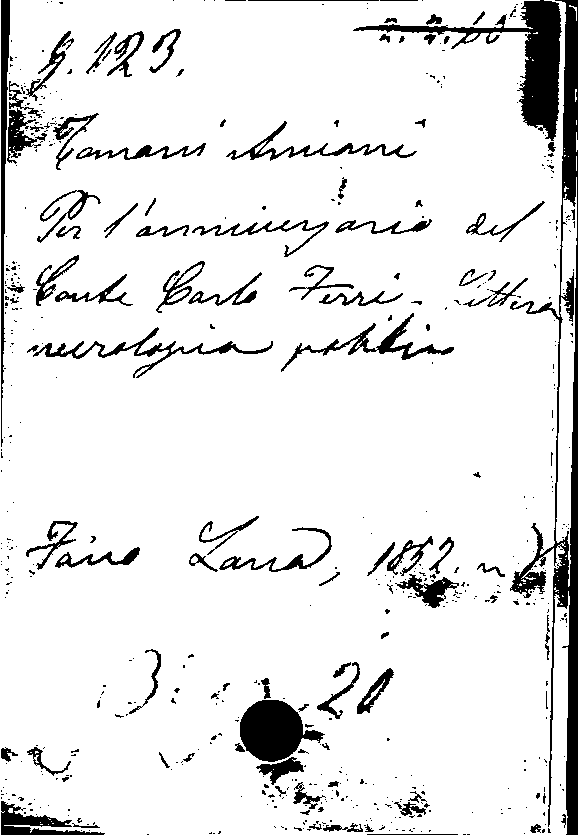 G. 123.
Tomani Amiani
Per l'anniversario del
Conte Carlo Ferri - Lettera
necrologica politica
Fano Lana, 1852. in 8
B 20